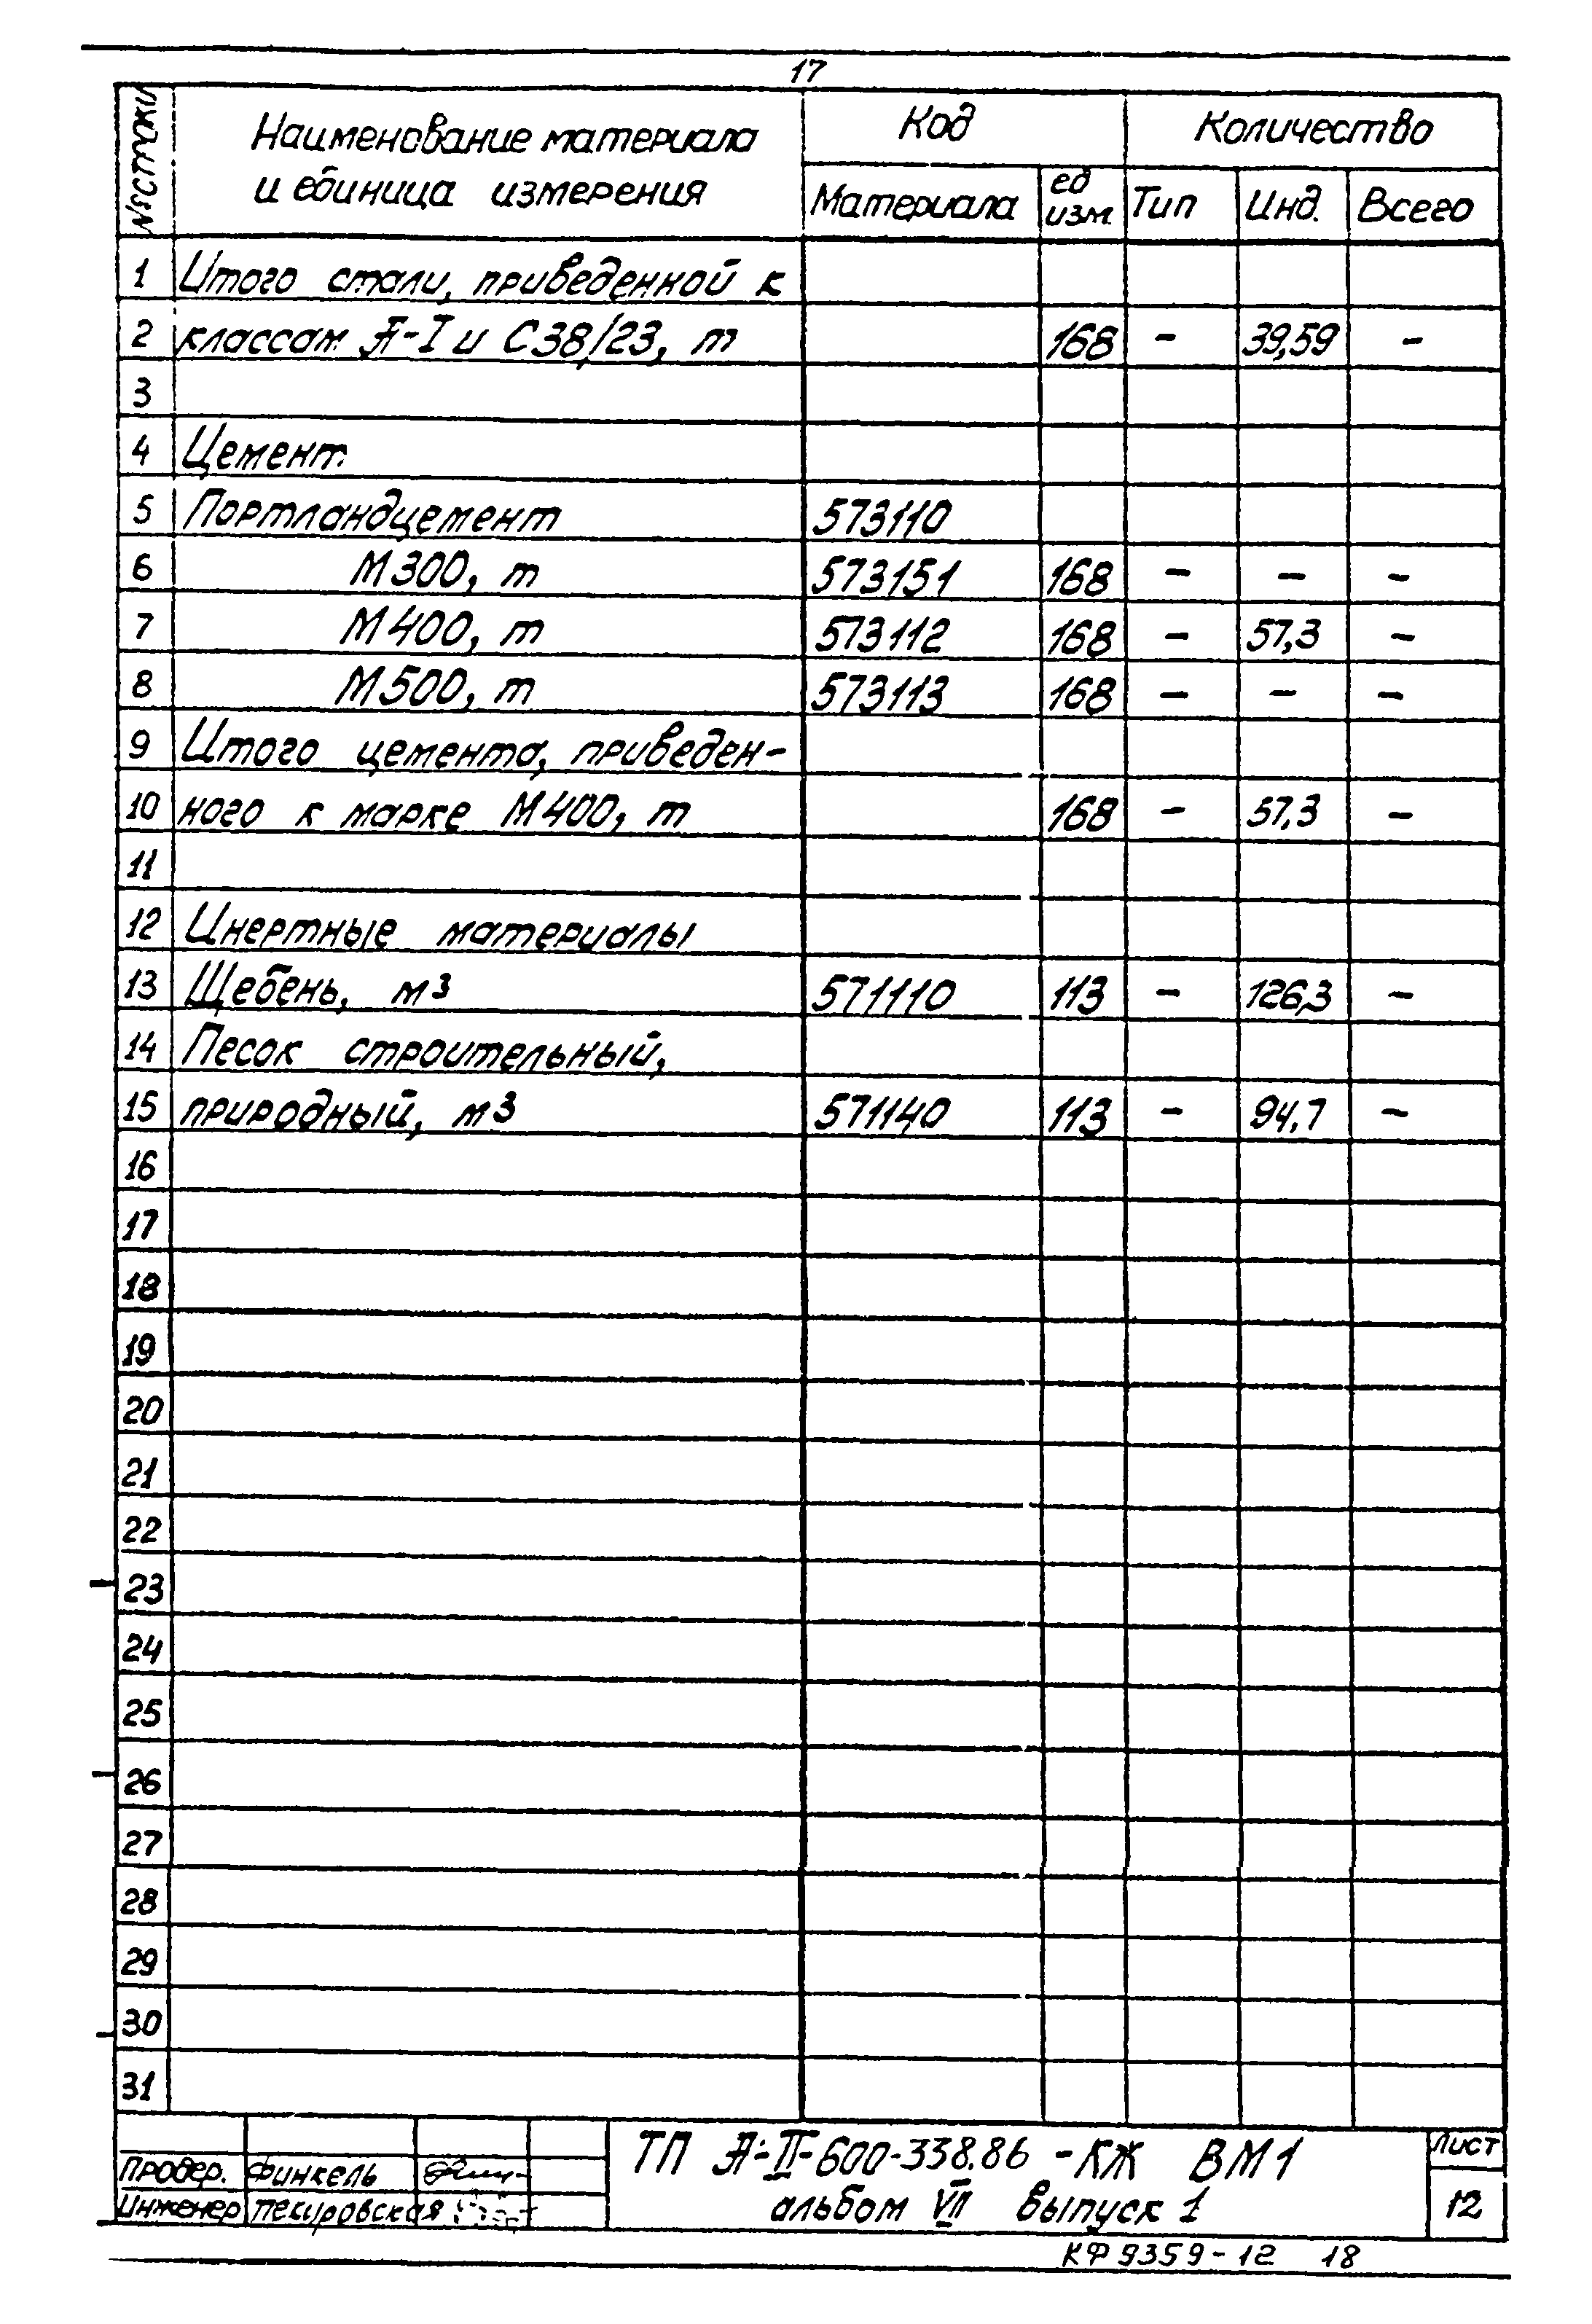 17
№ строки
Наименование материала
и единица измерения
Код
Количество
Материала
ед
изм.
Тип
Инд.
Всего
1 Итого стали, приведенной к
2 классам А-I и С38/23, т 168 - 39,59 -
3
4 Цемент.
5 Портландцемент 573110
6 М300, т 573151 168 - - -
7 М400, т 573112 168 - 57,3 -
8 М500, т 573113 168 - - -
9 Итого цемента, приведен-
10 ного к марке М400, т 168 - 57,3 -
11
12 Инертные материалы
13 Щебень, м³ 571110 113 - 126,3 -
14 Песок строительный,
15 природный, м³ 571140 113 - 94,7 -
16
17
18
19
20
21
22
23
24
25
26
27
28
29
30
31
Провер. Финкель
Инженер Пекуровская
ТП А-II-600-338.86 -КЖ ВМ1
альбом VII выпуск 1
Лист
12
КФ 9359-12 18